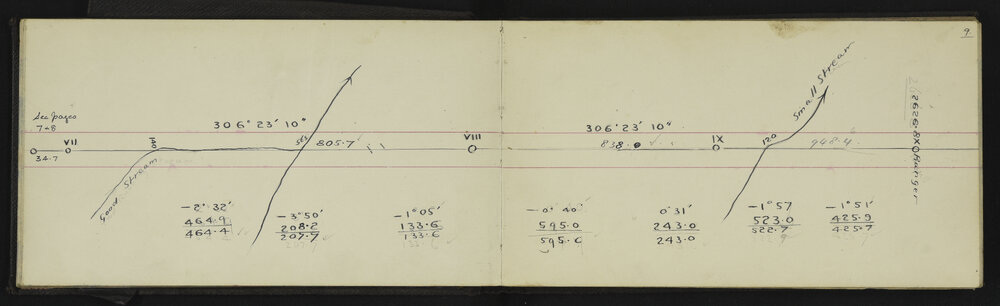 9
See pages
7-8
34.7
VII
Good Stream
140
306° 23' 10"
563
805.7
VIII
306° 23' 10"
838.0
IX
120
Small Stream
948.4
-2° 32'
464.9
464.4
-3° 50'
208.2
207.7
-1° 05'
133.6
133.6
-0° 40'
595.0
595.0
0° 31'
243.0
243.0
-1° 57
523.0
522.7
-1° 51'
425.9
425.7